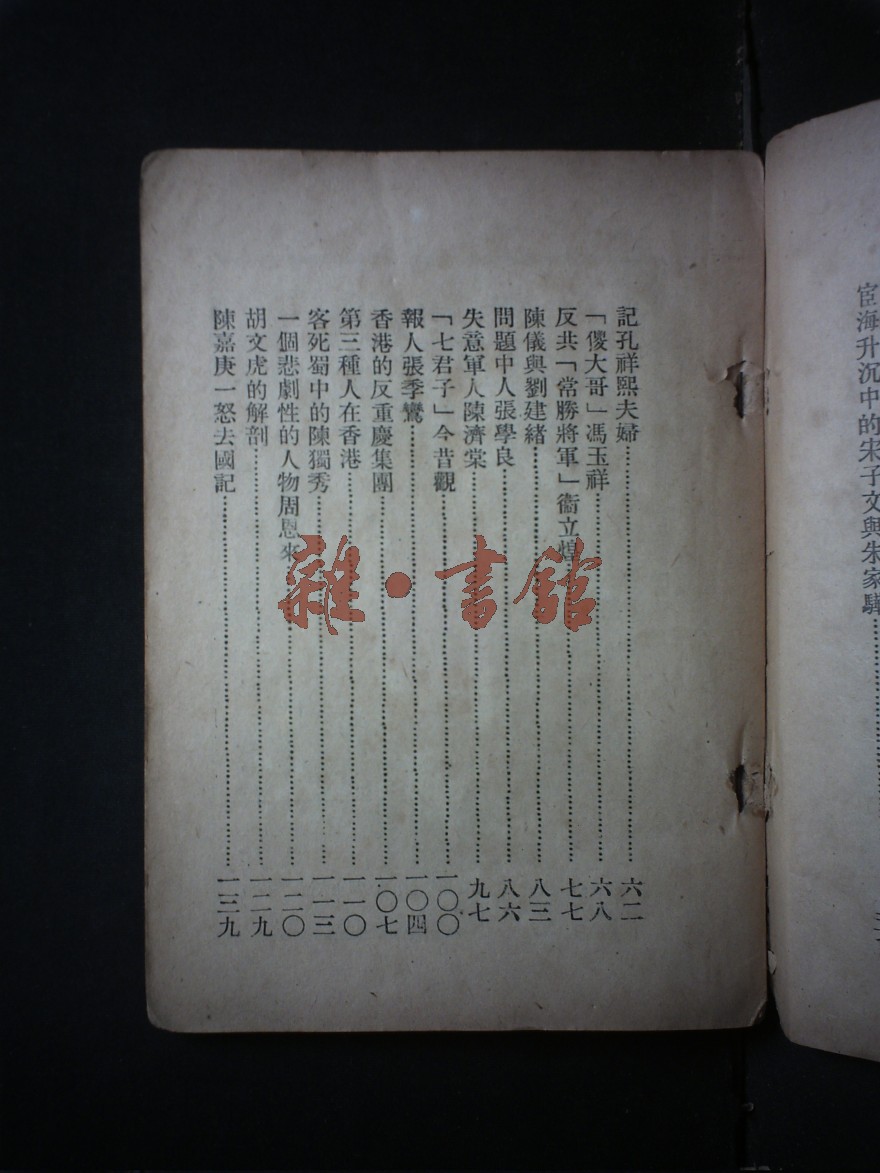 宦海升沉中的宋子文與朱家驊
記孔祥熙夫婦 六二
「傻大哥」馮玉祥 六八
反共「常勝將軍」衞立煌 七七
陳儀與劉建緒 八三
問題中人張學良 八六
失意軍人陳濟棠 九七
「七君子」今昔觀 一〇〇
報人張季鸞 一〇四
香港的反重慶集團 一〇七
第三種人在香港 一一〇
客死蜀中的陳獨秀 一一三
一個悲劇性的人物周恩來 一二〇
胡文虎的解剖 一二九
陳嘉庚一怒去國記 一三九
雜·書館